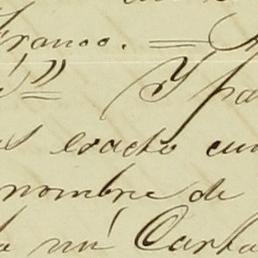 Franco. = A
" = Y pa
s exacto cum
nombre de
mi Carta